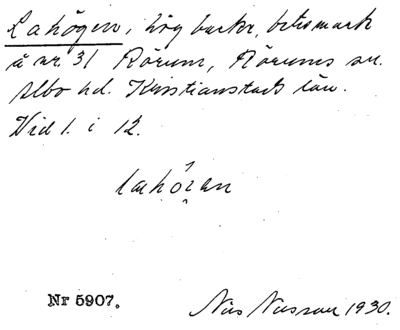 Lahögen, hög backe, betesmark
å nr. 31 Rörum, Rörums sn.
Albo hd. Kristianstads län.
Vid 1. i 12.
lahögen
Nr 5907.
Nils Nilsson 1930.